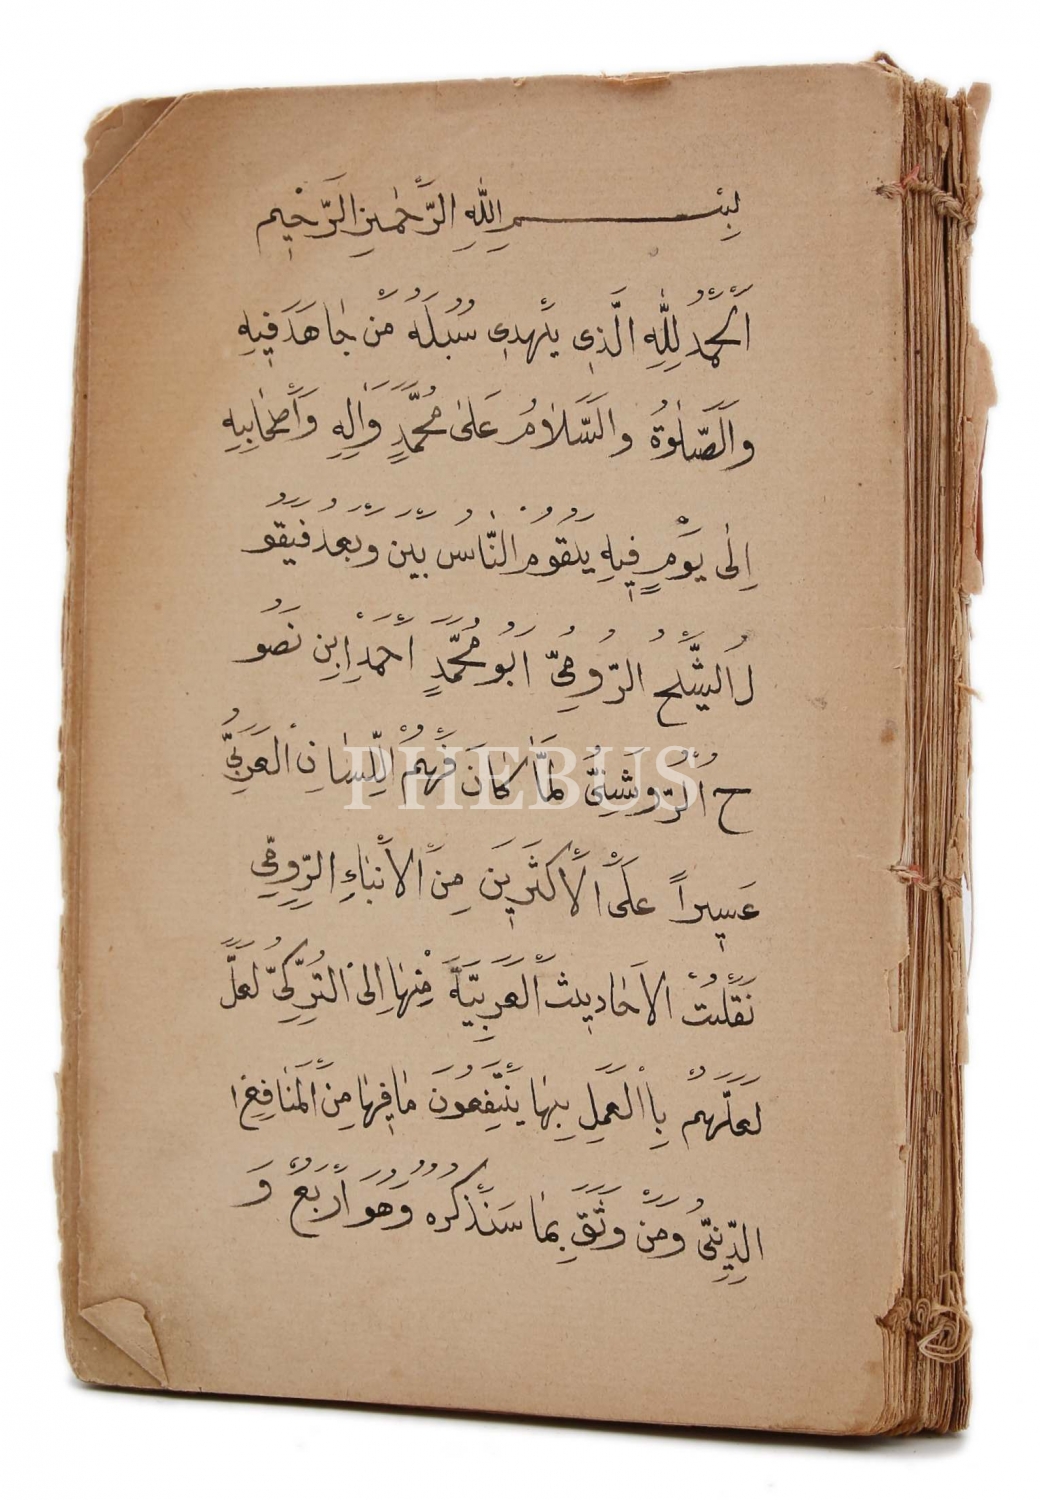 بِسْمِ اللهِ الرَّحْمٰنِ الرَّحِيْمِ
اَلْحَمْدُ لِلّٰهِ الَّذِي يَهْدِي سُبُلَهُ مَنْ جَاهَدَ فِيهِ
وَالصَّلٰوةُ وَالسَّلَامُ عَلٰى مُحَمَّدٍ وَاٰلِهِ وَاَصْحَابِهِ
اِلٰى يَوْمٍ فِيهِ يَقُومُ النَّاسُ بين وَبَعْدُ فَيَقُو
لُ الشَّيْخُ الرُّومِيُّ اَبُو مُحَمَّدٍ اَحْمَدُ اِبْنِ نَصُو
حُ الرَّوشَنِيُّ لَمَّا كَانَ فَهْمُ اللِّسَانِ الْعَرَبِيِّ
عَسِيراً عَلَى الْاَكْثَرِينَ مِنَ الْاَنْبَاءِ الرُّومِيِّ
نَقَلْتُ الْاَحَادِيثَ الْعَرَبِيَّةَ مِنْهَا اِلَى التُّرْكِيِّ لَعَلَّ
لَعَلَّهُمْ بِاالْعَمَلِ بِهَا يَنْتَفِعُونَ مَافِيهَا مِنَ الْمَنَافِعِ ا
الدِّينِيُّ وَمَنْ وَثَقَ بِمَا سَنَذْكُرُهُ وَهُوَ اَرْبَعُ وَ
PHEBUS